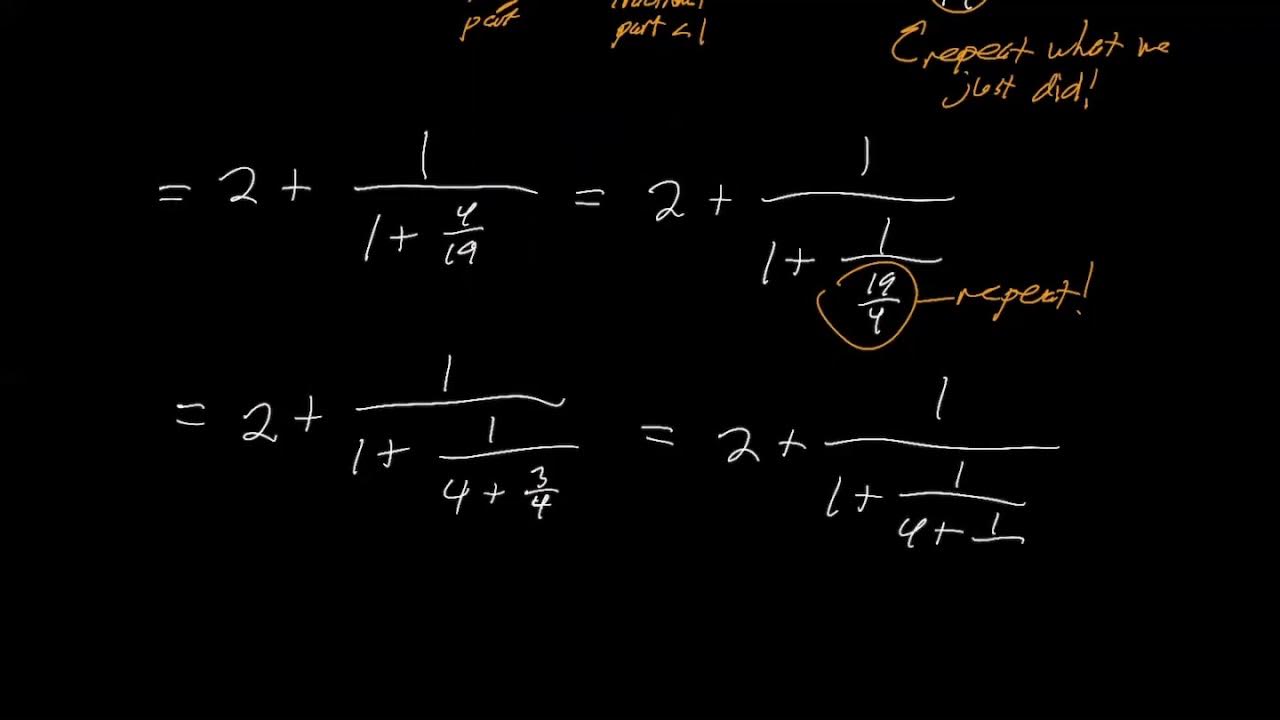 part
part < 1
repeat what we
just did!
= 2 + 1/(1 + 4/19) = 2 + 1/(1 + 1/(19/4)) — repeat!
= 2 + 1/(1 + 1/(4 + 3/4)) = 2 + 1/(1 + 1/(4 + 1/